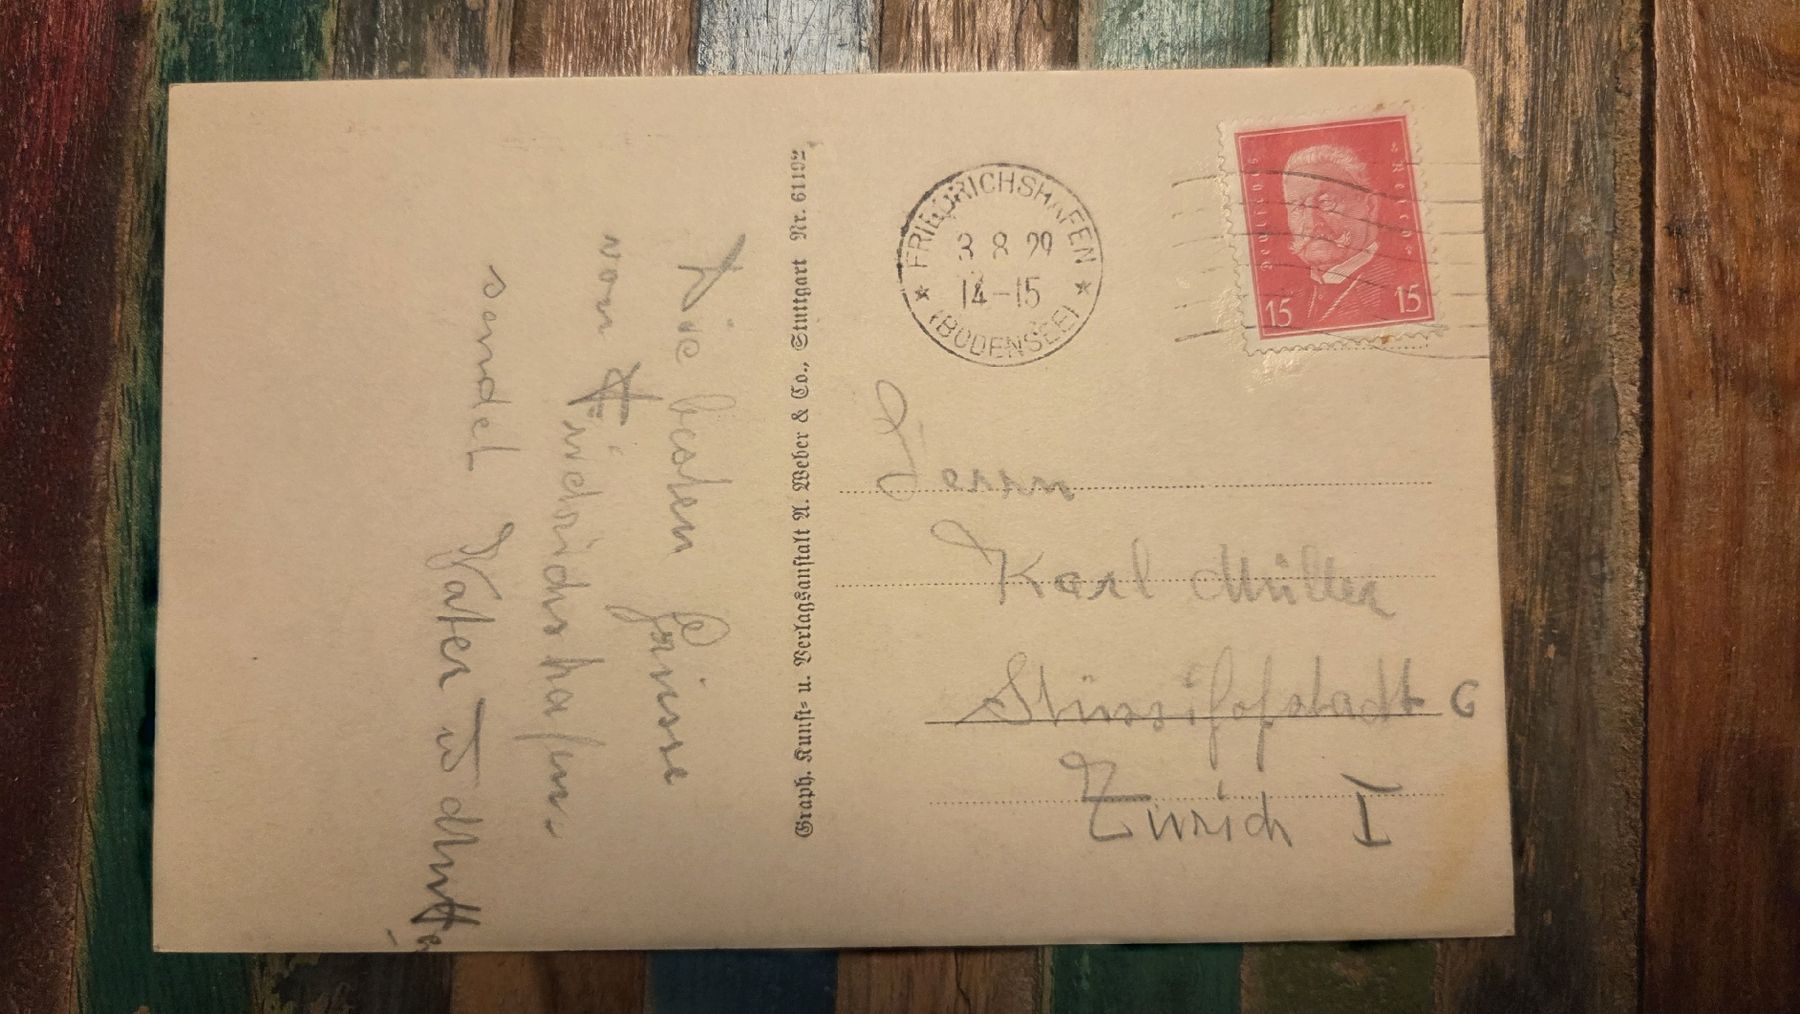 Die besten Grüsse
von Fridrichshafen.
sendet Vater u Mutter
Graph. Kunst- u. Verlagsanstalt A. Weber & Co., Stuttgart Nr. 61192
★ FRIEDRICHSHAFEN ★
3 8 29
14-15
(BODENSEE)
Deutsches
Reich
15 15
Herrn
Karl Müller
Stüssihofstadt 6
Zürich I